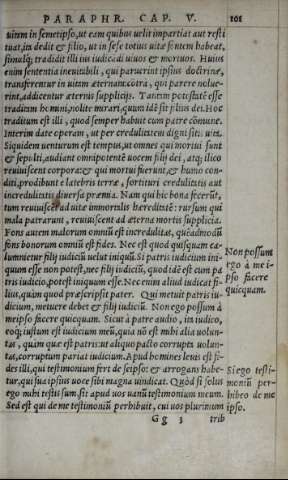 PARAPHR. CAP. V. 101
uitam in semetipso, ut eam quibus uelit impartiat aut resti
tuat, ita dedit & filio, ut in sese totius uitæ fontem habeat,
simulq; tradidit illi ius iudicãdi uiuos & mortuos. Huius
enim sententia ineuitabili, qui paruerint ipsius doctrinæ,
transferentur in uitam æternam: cõtra, qui parere nolue-
rint, addicentur æternis supplicijs. Tantam potestatẽ esse
traditam homini, nolite mirari, quum idẽ sit filius dei. Hoc
traditum est illi, quod semper habuit cum patre cõmune.
Interim date operam, ut per credulitatem digni sitis uita.
Siquidem uenturum est tempus, ut omnes qui mortui sunt
& sepolti, audiant omnipotentẽ uocem filij dei, atq; ilico
reuiuiscent corpora: & qui mortui fuerant, & humo con-
diti, prodibunt e latebris terræ, sortituri credulitatis aut
incredulitatis diuersa præmia. Nam qui hic bona fecerũt,
tum reuiuiscent ad uitæ immortalis hæreditatẽ: rursum qui
mala patrarunt, reuiuiscent ad æterna mortis supplicia.
Fons autem malorum omniũ est incredulitas, quẽadmodũ
fons bonorum omniũ est fides. Nec est quod quisquam ca-
lumnietur filij iudiciũ uelut iniquũ. Si patris iudicium ini-
quum esse non potest, nec filij iudiciũ, quod idẽ est cum pa
tris iudicio, potest iniquum esse. Nec enim aliud iudicat fi-
lius, quàm quod præscripsit pater. Qui metuit patris iu-
dicium, metuere debet & filij iudiciũ. Non ego possum à
meipso facere quicquam. Sicut à patre audio, ita iudico,
eoq; iustum est iudicium meũ, quia nõ est mihi alia uolun-
tas, quàm quæ est patris: ut aliquo pacto corrupta uolun-
tas, corruptum pariat iudicium. Apud homines leuis est fi-
des illi, qui testimonium fert de seipso: & arrogans habe-
tur, qui sua ipsius uoce sibi magna uindicat. Quòd si solus
ego mihi testis sum, sit apud uos uanũ testimonium meum.
Sed est qui de me testimoniũ perhibuit, cui uos plurimum
Gg 3 trib
Non possum
ego à me i-
pso facere
quicquam.
Si ego testi-
moniũ per-
hibeo de me
ipso.